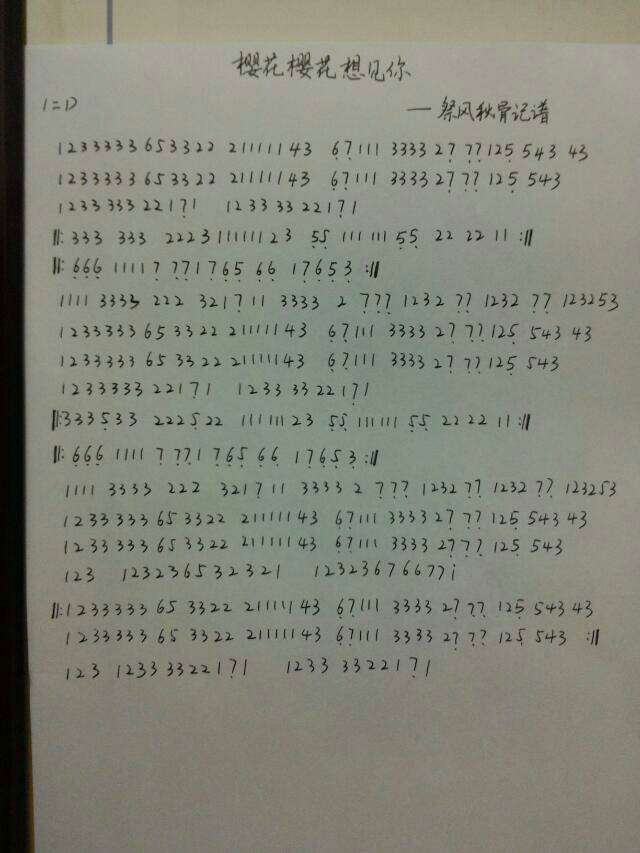 樱花樱花想见你
1=D
—祭风秋骨记谱
1233333 653322 21111143 67̣111 333327̣ 7̣7̣125̣ 543 43
1233333 653322 21111143 6̣7̣111 333327̣ 7̣7̣125̣ 543
1233333 2217̣1 1233 332217̣1
‖: 333 333 2223 11111123 5̣5̣ 111111 5̣5̣ 22 22 11 :‖
‖: 6̣6̣6̣ 1111 7̣ 7̣7̣1 7̣6̣5̣ 6̣6̣ 17̣6̣5̣3̣ :‖
1111 3333 222 3217̣11 3333 2 7̣7̣7̣ 1232 7̣7̣ 1232 7̣7̣ 123253
1233333 65 3322 21111143 6̣7̣111 333327̣ 7̣7̣125̣ 543 43
1233333 65 3322 21111143 6̣7̣111 333327̣ 7̣7̣125̣ 543
1233333 2217̣1 1233 332217̣1
‖:3335̣33 2225̣22 11111123 5̣5̣ 111111 5̣5̣ 22 22 11 :‖
‖: 6̣6̣6̣ 1111 7̣ 7̣7̣1 7̣6̣5̣ 6̣6̣ 17̣6̣5̣3̣ :‖
1111 3333 222 3217̣11 3333 2 7̣7̣7̣ 1232 7̣7̣ 1232 7̣7̣ 123253
1233333 65 3322 21111143 6̣7̣111 333327̣ 7̣7̣125̣ 543 43
1233333 65 3322 21111143 6̣7̣111 333327̣ 7̣7̣125̣ 543
123 1232365 32321 12323676677i
‖:1233333 65 3322 21111143 6̣7̣111 333327̣ 7̣7̣ 125̣ 543 43
1233333 65 3322 21111143 6̣7̣111 333327̣ 7̣7̣ 125̣ 543 :‖
123 1233 332217̣1 1233 332217̣1